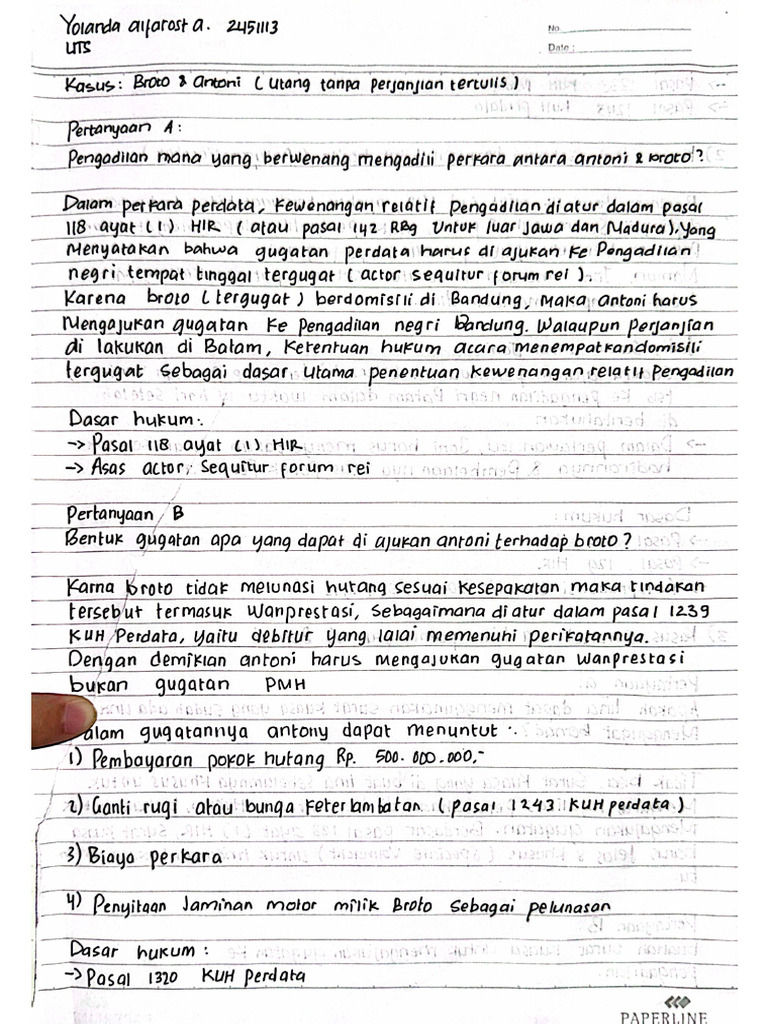 Yolanda alfarost a. 2451113
UTS
No.
Date :
Kasus: Broto & Antoni ( Utang tanpa perjanjian tertulis )
Pertanyaan A :
Pengadilan mana yang berwenang mengadili perkara antara antoni & broto ?
Dalam perkara perdata, kewenangan relatif Pengadilan diatur dalam pasal
118 ayat (1) HIR ( atau pasal 142 RBg Untuk luar Jawa dan Madura). Yang
Menyatakan bahwa gugatan perdata harus di ajukan ke Pengadilan
negri tempat tinggal tergugat ( actor sequitur forum rei ).
Karena broto ( tergugat ) berdomisili di Bandung, Maka Antoni harus
Mengajukan gugatan ke Pengadilan negri Bandung. Walaupun perjanjian
di lakukan di Batam, Ketentuan hukum acara menempatkan domisili
tergugat sebagai dasar utama penentuan kewenangan relatif Pengadilan
Dasar hukum :
-> Pasal 118 ayat (1) HIR
-> Asas actor, Sequitur forum rei
Pertanyaan B
Bentuk gugatan apa yang dapat di ajukan antoni terhadap broto ?
Karna broto tidak melunasi hutang sesuai kesepakatan maka tindakan
tersebut termasuk Wanprestasi, Sebagaimana diatur dalam pasal 1239
KUH Perdata, Yaitu debitur yang lalai memenuhi perikatannya.
Dengan demikian antoni harus mengajukan gugatan wanprestasi
bukan gugatan PMH
alam gugatannya antony dapat menuntut :
1) Pembayaran pokok hutang Rp. 500.000.000,-
2) Ganti rugi atau bunga keterlambatan ( pasal 1243 KUH perdata )
3) Biaya perkara
4) Penyitaan Jaminan motor milik Broto sebagai pelunasan
Dasar hukum :
-> Pasal 1320 KUH Perdata
PAPERLINE